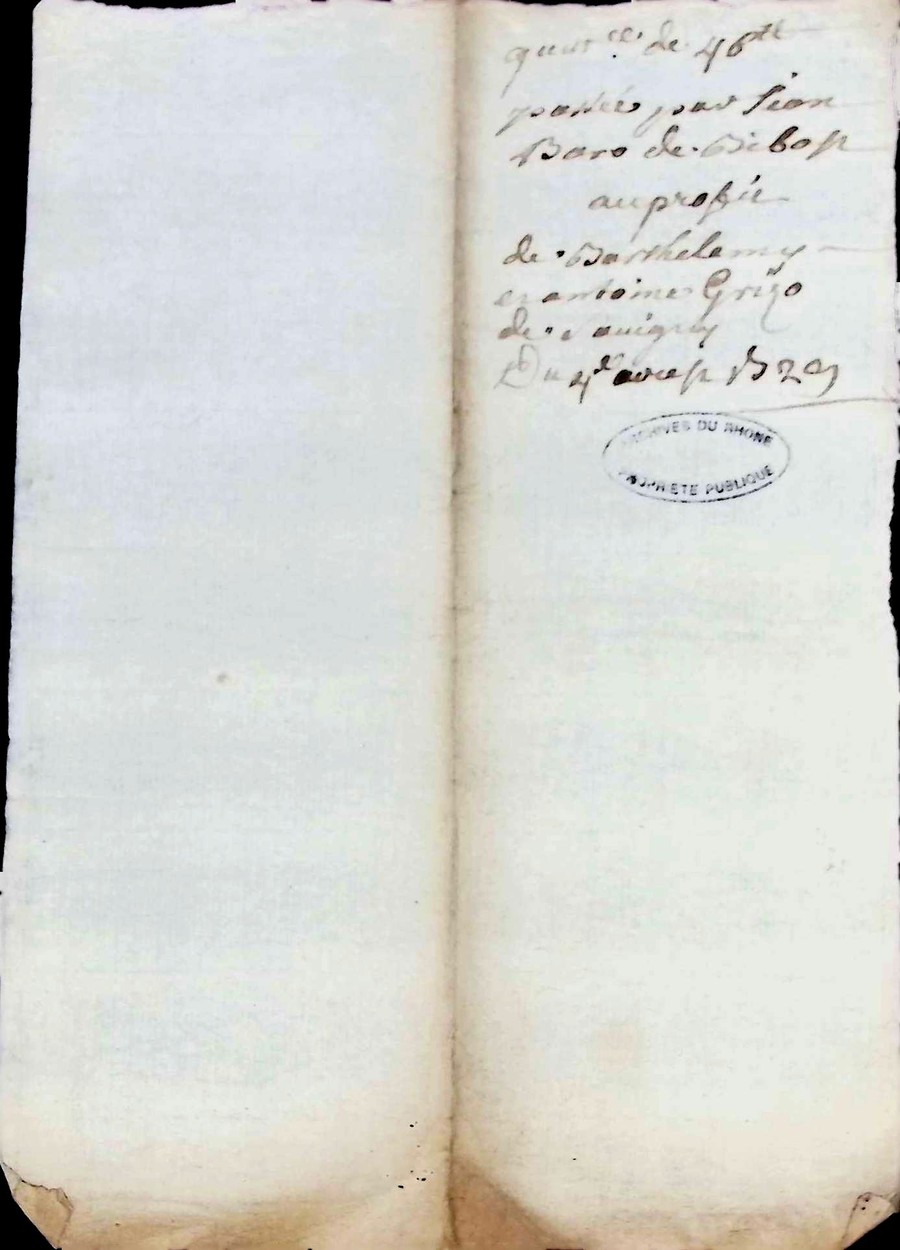 quitt.ce de 46tt
passée par Jean
Baro de Bibost
au profit
de Barthelemy
et antoine Grizo
de Savigny
Du 4e
ARCHIVES DU RHONE
PROPRIETE PUBLIQUE